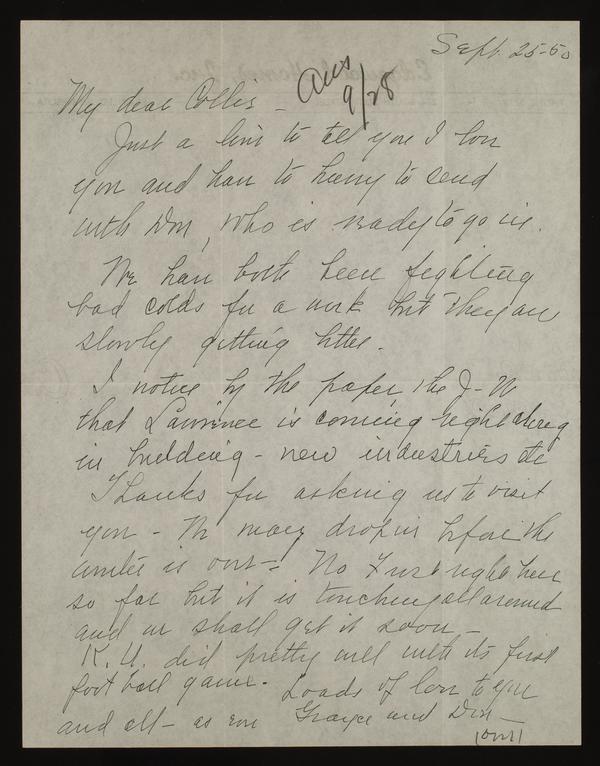 Sept. 25-50
Ans
9/28
My dear Colles -
Just a line to tell you I love
you and have to hurry to send
with Don, who is ready to go in.
We have both been fighting
bad colds for a week but they are
slowly getting better.
I notice by the paper, the J-W
that Lawrence is coming right along
in building - new industries etc
Thanks for asking us to visit
you - We may drop in before the
winter is over - No Frost right here
so far but it is touching all around
and we shall get it soon -
K. U. did pretty well with its first
foot ball game. Loads of love to you
and all - as ever Grayce and Don -